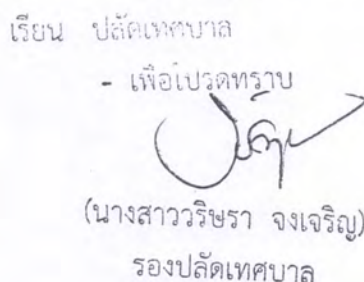 เรียน ปลัดเทศบาล
- เพื่อโปรดทราบ
(นางสาววริษรา จงเจริญ)
รองปลัดเทศบาล